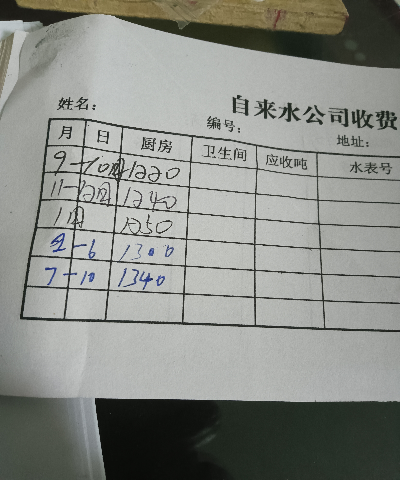 自来水公司收费
姓名： 编号： 地址：
月 日 厨房 卫生间 应收吨 水表号
9-10月 1220
11-12月 1240
1月 1250
2-6 1300
7-10 1340